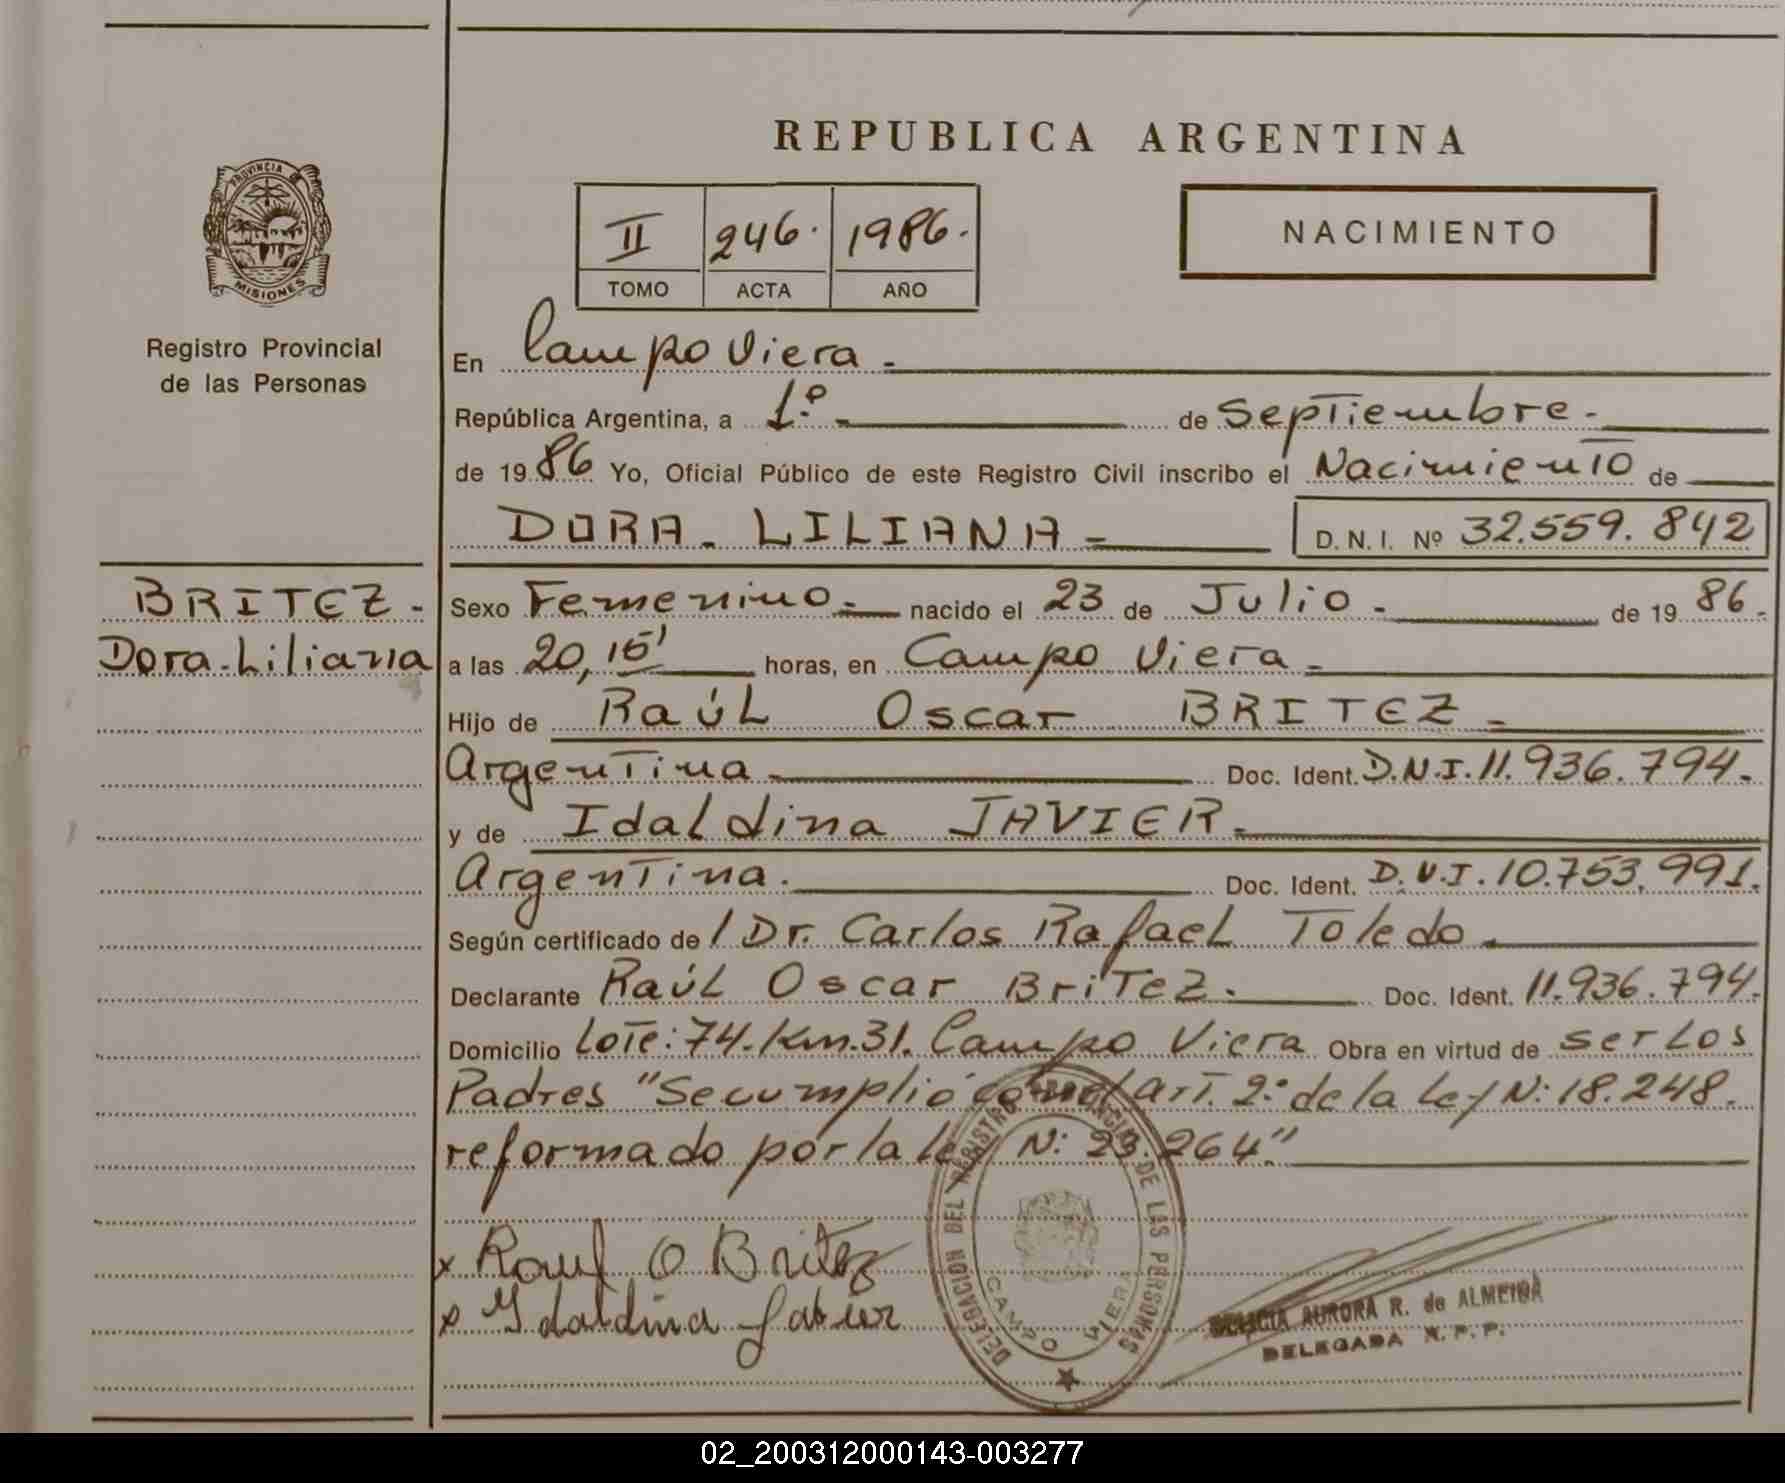 REPUBLICA ARGENTINA
PROVINCIA DE
MISIONES
Registro Provincial
de las Personas
II 246. 1986.
TOMO ACTA AÑO
NACIMIENTO
En Campo Viera.
República Argentina, a 1º. de Septiembre.
de 1986 Yo, Oficial Público de este Registro Civil inscribo el Nacimiento de
DORA. LILIANA D. N. I. Nº 32.559.842
BRITEZ.
Dora. Liliana
Sexo Femenino. nacido el 23 de Julio. de 1986.
a las 20,15' horas, en Campo Viera.
Hijo de Raúl Oscar BRITEZ.
Argentina. Doc. Ident. D.N.I. 11.936.794.
y de Idaldina JAVIER.
Argentina. Doc. Ident. D.N.I. 10.753.991.
Según certificado de / Dr. Carlos Rafael Toledo.
Declarante Raúl Oscar Britez. Doc. Ident. 11.936.794.
Domicilio Lote: 74. Km. 31. Campo Viera Obra en virtud de ser los
Padres "Se cumplió con el art. 2º de la Ley N: 18.248.
reformado por la Ley N: 23.264."
x Raul O Britez
x Idaldina Javier
DELEGACION DEL REGISTRO PROVINCIAL DE LAS PERSONAS
CAMPO VIERA
DELICIA AURORA R. de ALMEIDA
DELEGADA R. P. P.
02_200312000143-003277